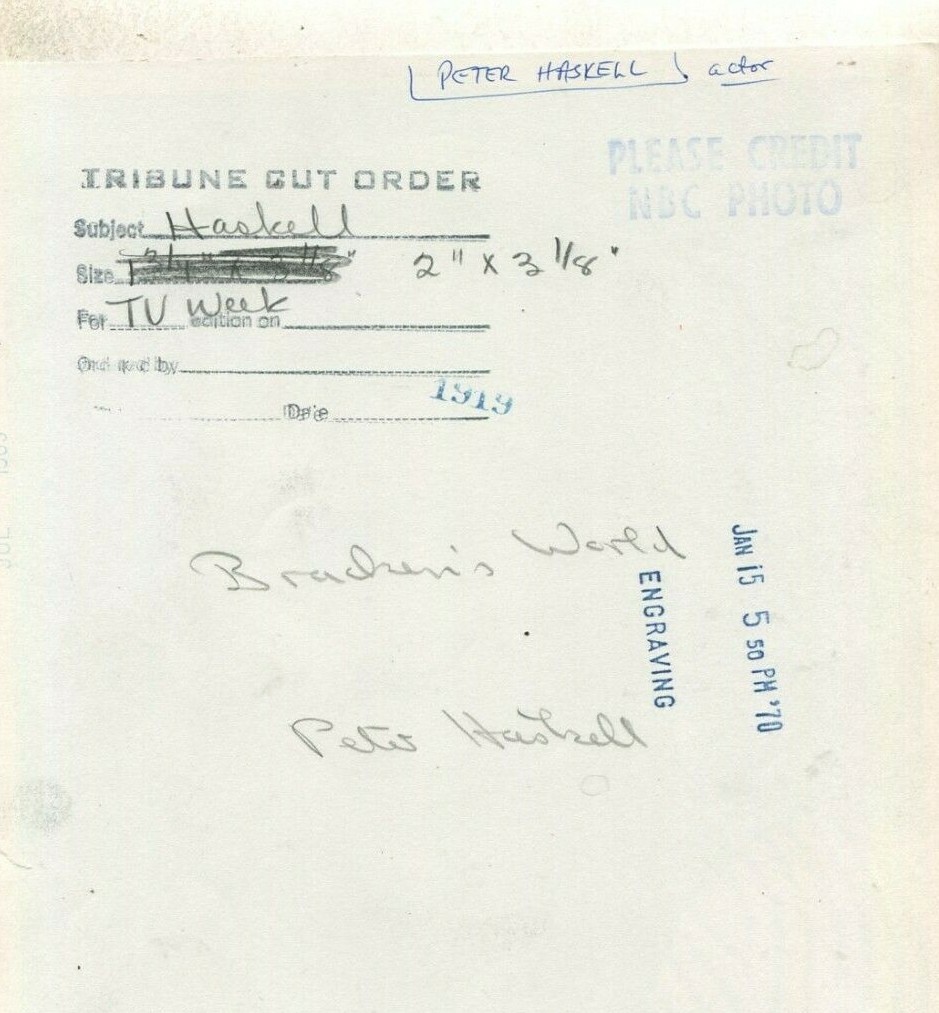 PETER HASKELL actor
PLEASE CREDIT
NBC PHOTO
TRIBUNE CUT ORDER
Subject Haskell
Size 1 3/4" x 3 1/8" 2" x 3 1/8"
For TV Week edition on
Ordered by
Date 1919
Bracken's World
ENGRAVING
JAN 15 5 50 PM '70
Peter Haskell